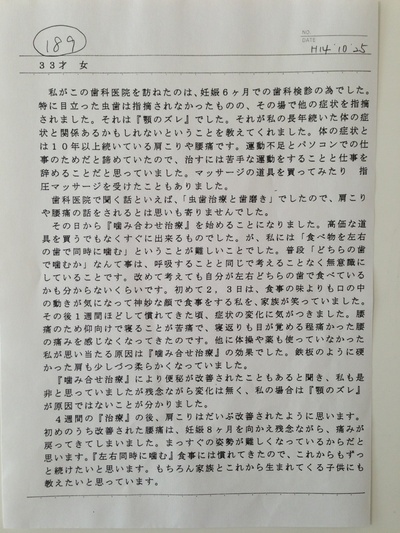 189
NO.
DATE
H14.10.25
33才 女
私がこの歯科医院を訪ねたのは、妊娠6ヶ月での歯科検診の為でした。
特に目立った虫歯は指摘されなかったものの、その場で他の症状を指摘
されました。それは『顎のズレ』でした。それが私の長年続いた体の症
状と関係あるかもしれないということを教えてくれました。体の症状と
は10年以上続いている肩こりや腰痛です。運動不足とパソコンでの仕
事のためだと諦めていたので、治すには苦手な運動をすることと仕事を
辞めることだと思っていました。マッサージの道具を買ってみたり 指
圧マッサージを受けたこともありました。
歯科医院で聞く話といえば、「虫歯治療と歯磨き」でしたので、肩こ
りや腰痛の話をされるとは思いも寄りませんでした。
その日から『噛み合わせ治療』を始めることになりました。高価な道
具を買うでもなくすぐに出来るものでした。が、私には「食べ物を左右
の歯で同時に噛む」ということが難しいことでした。普段「どちらの歯
で噛むか」なんて事は、呼吸することと同じで考えることなく無意識に
していることです。改めて考えても自分が左右どちらの歯で食べている
かも分からないくらいです。初めて2,3日は、食事の味よりも口の中
の動きが気になって神妙な顔で食事をする私を、家族が笑っていました。
その後1週間ほどして慣れてきた頃、症状の変化に気がつきました。腰
痛のため仰向けで寝ることが苦痛で、寝返りも目が覚める程痛かった腰
の痛みを感じなくなってきたのです。他に体操や薬も使っていなかった
私が思い当たる原因は『噛み合せ治療』の効果でした。鉄板のように硬
かった肩も少しづつ柔らかくなっていました。
『噛み合せ治療』により便秘が改善されたこともあると聞き、私も是
非と思っていましたが残念ながら変化は無く、私の場合は『顎のズレ』
が原因ではないことが分かりました。
4週間の『治療』の後、肩こりはだいぶ改善されたように思います。
初めのうち改善された腰痛は、妊娠8ヶ月を向かえ残念ながら、痛みが
戻ってきてしまいました。まっすぐの姿勢が難しくなっているからだと
思います。『左右同時に噛む』食事には慣れてきたので、これからもずっ
と続けたいと思います。もちろん家族とこれから生まれてくる子供にも
教えたいと思っています。